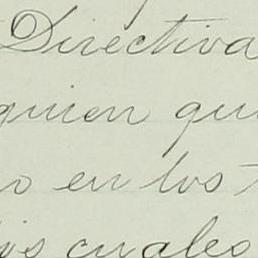 Directiva
quien qui
o en los
cuales